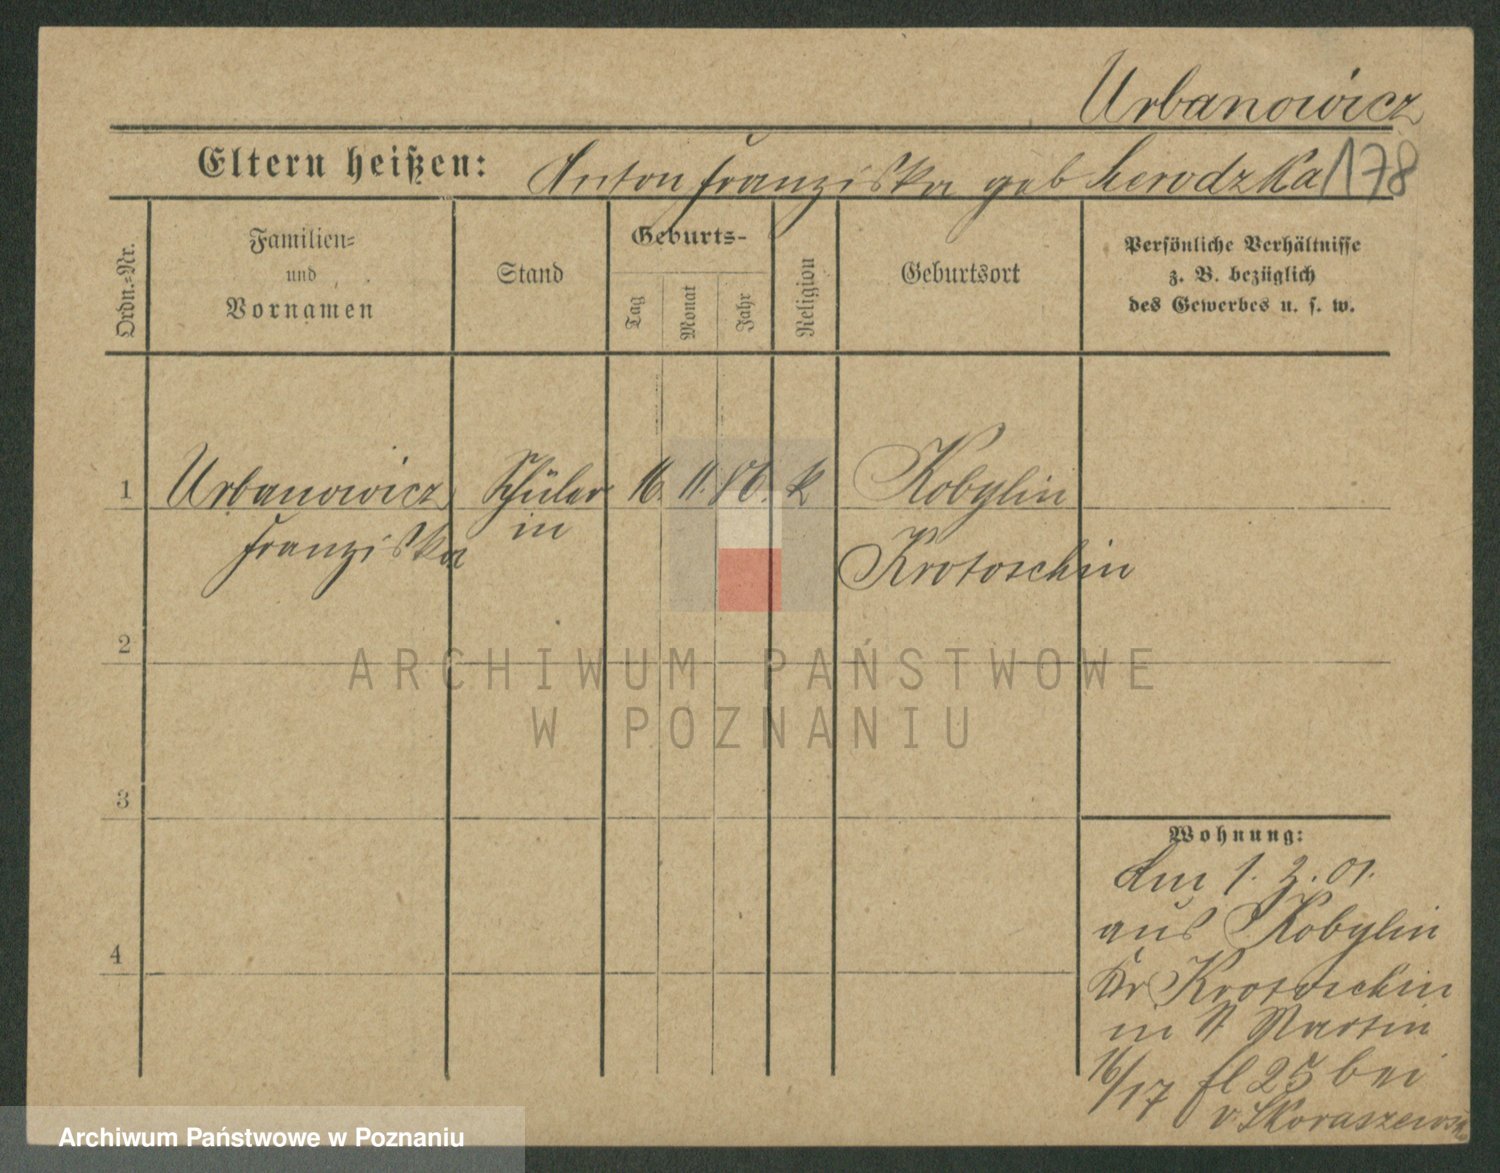 Urbanowicz
Eltern heißen: Anton Franziska geb 178
Ordn.-Nr.
Familien- und Vornamen
Stand
Geburts-
Tag
Monat
Jahr
Religion
Geburtsort
Persönliche Verhältnisse
z. B. bezüglich
des Gewerbes u. s. w.
1 Urbanowicz Schüler 16. 11. 86. k Kobylin
Franziska in Krotoschin
2
3
4
Wohnung:
Am 1. 2. 01.
aus Kobylin
Kr Krotoschin
in St Martin
16/17 fl 25 bei
v. Skoraszewsk
ARCHIWUM PAŃSTWOWE
W POZNANIU
Archiwum Państwowe w Poznaniu